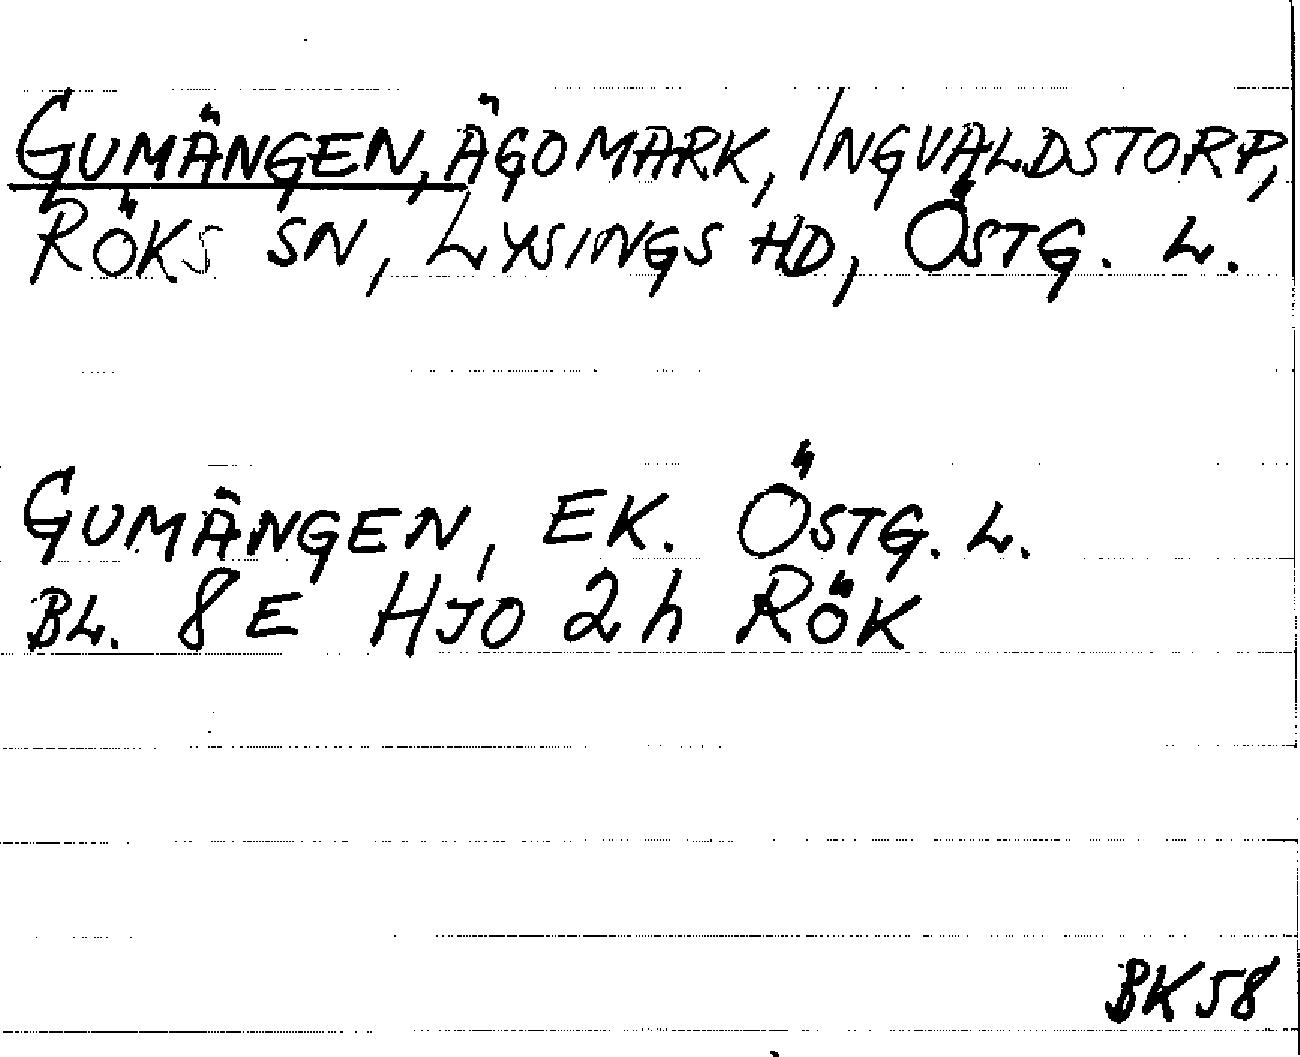 GUMÄNGEN, ÄGOMARK, INGVALDSTORP,
RÖKS SN, LYSINGS HD, ÖSTG. L.
GUMÄNGEN, EK. ÖSTG. L.
BL. 8 E HJO 2h RÖK
BK58